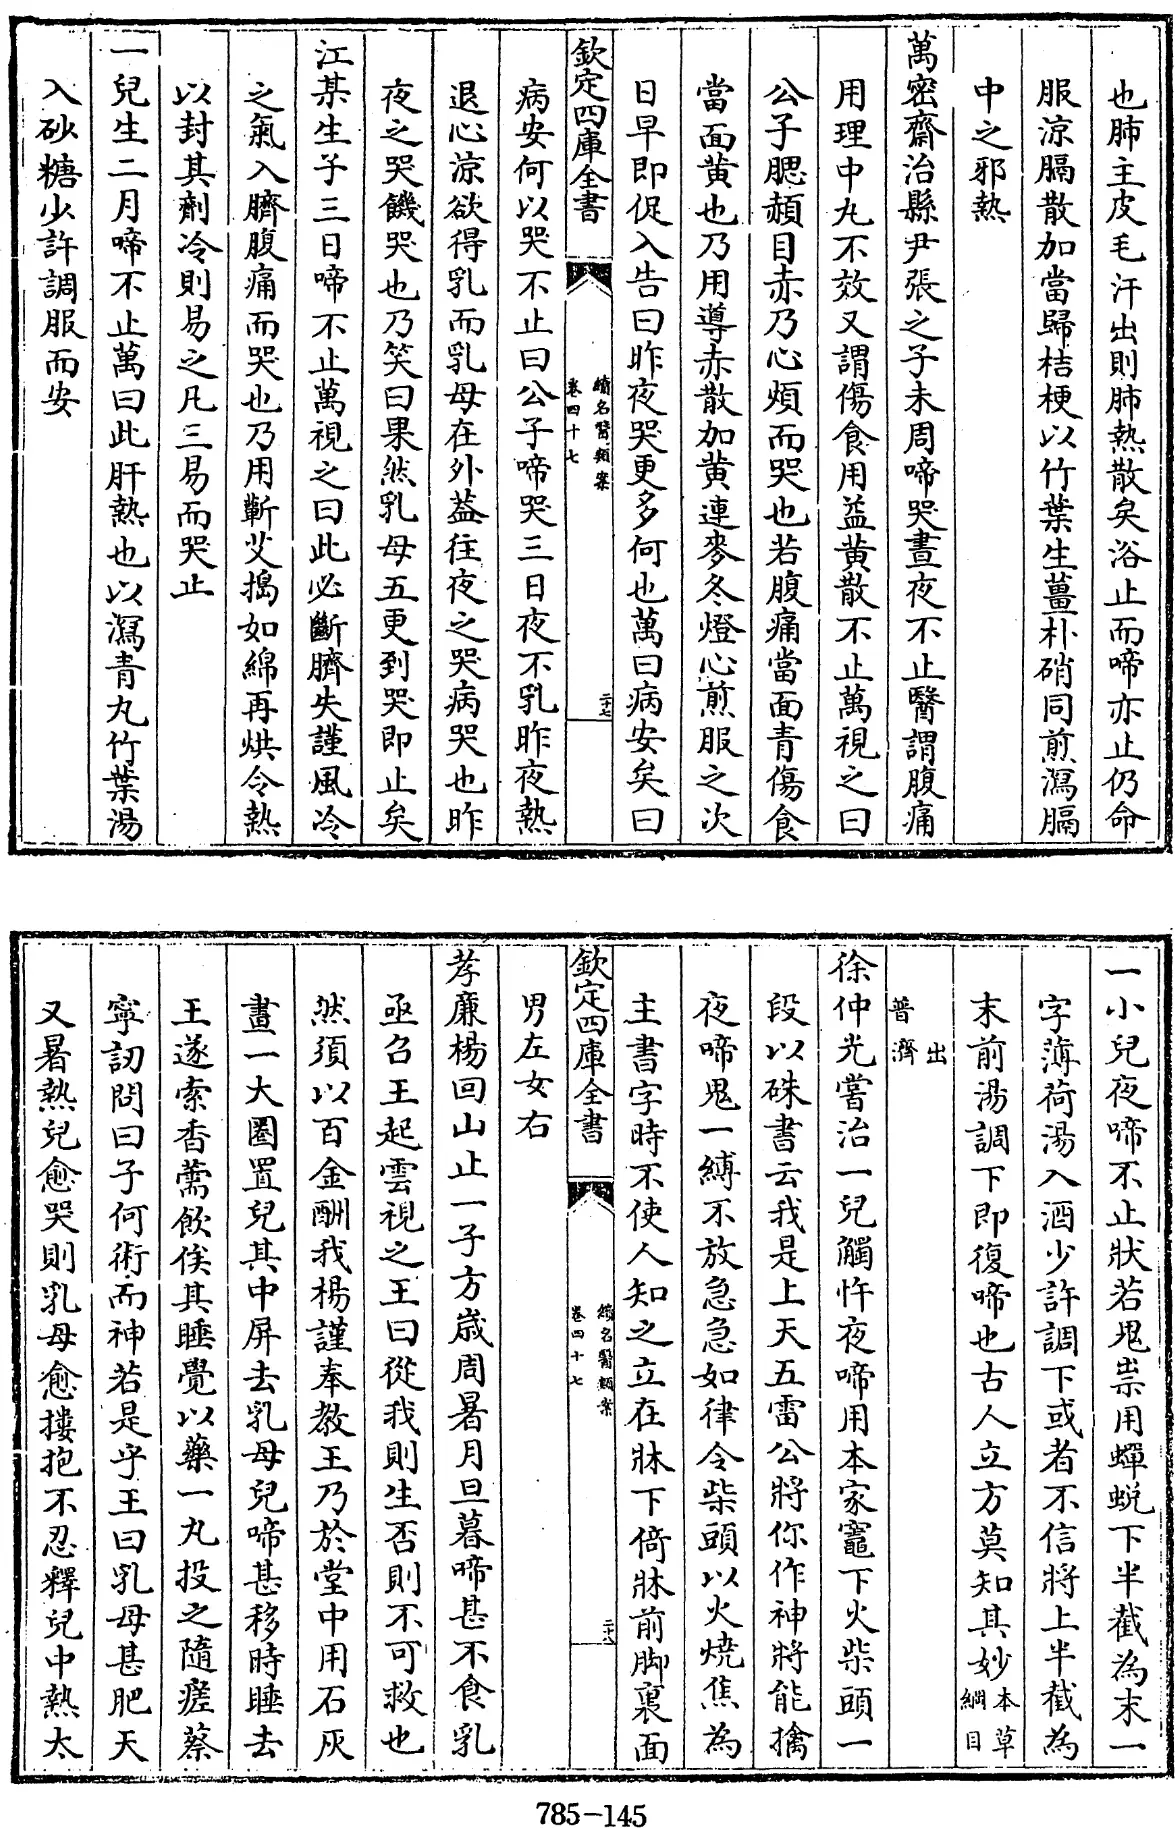 也肺主皮毛汗出則肺熱散矣浴止而啼亦止仍命
服涼膈散加當歸桔梗以竹葉生薑朴硝同煎瀉膈
中之邪熱
萬密齋治縣尹張之子未周啼哭晝夜不止醫謂腹痛
用理中丸不效又謂傷食用益黄散不止萬視之曰
公子腮頳目赤乃心煩而哭也若腹痛當面青傷食
當面黄也乃用導赤散加黄連麥冬燈心煎服之次
日早即促入告曰昨夜哭更多何也萬曰病安矣曰
欽定四庫全書
續名醫類案
卷四十七
二十七
病安何以哭不止曰公子啼哭三日夜不乳昨夜熱
退心涼欲得乳而乳母在外葢往夜之哭病哭也昨
夜之哭饑哭也乃笑曰果然乳母五更到哭即止矣
江某生子三日啼不止萬視之曰此必斷臍失謹風冷
之氣入臍腹痛而哭也乃用蘄艾搗如綿再烘令熱
以封其劑冷則易之凡三易而哭止
一兒生二月啼不止萬曰此肝熱也以瀉青丸竹葉湯
入砂糖少許調服而安
一小兒夜啼不止狀若鬼祟用蟬蛻下半截為末一
字薄荷湯入酒少許調下或者不信將上半截為
末前湯調下即復啼也古人立方莫知其妙本草
綱目
出
普濟
徐仲光嘗治一兒觸忤夜啼用本家竈下火柴頭一
段以硃書云我是上天五雷公將你作神將能擒
夜啼鬼一縛不放急急如律令柴頭以火燒焦為
主書字時不使人知之立在牀下倚牀前脚裏面
欽定四庫全書
續名醫類案
卷四十七
二十八
男左女右
孝廉楊回山止一子方歲周暑月旦暮啼甚不食乳
亟召王起雲視之王曰從我則生否則不可救也
然須以百金酬我楊謹奉教王乃於堂中用石灰
畫一大圈置兒其中屏去乳母兒啼甚移時睡去
王遂索香薷飲俟其睡覺以藥一丸投之隨瘥蔡
寧訒問曰子何術而神若是乎王曰乳母甚肥天
又暑熱兒愈哭則乳母愈摟抱不忍釋兒中熱太
785-145